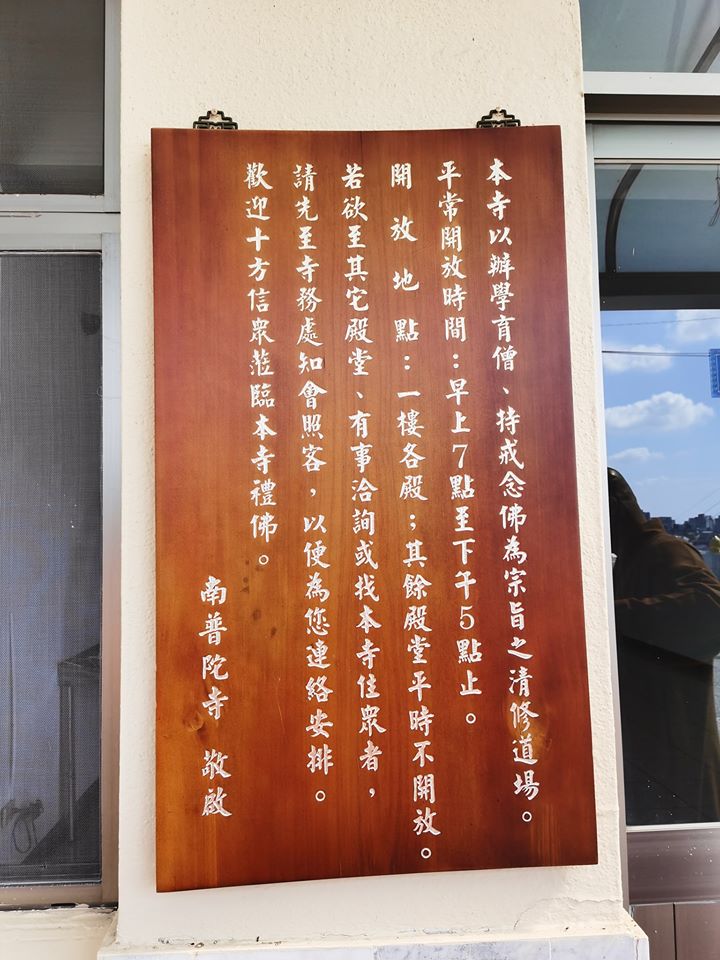 本寺以辦學育僧、持戒念佛為宗旨之清修道場。
平常開放時間：早上7點至下午5點止。
開放地點：一樓各殿；其餘殿堂平時不開放。
若欲至其它殿堂、有事洽詢或找本寺住眾者，
請先至寺務處知會照客，以便為您連絡安排。
歡迎十方信眾蒞臨本寺禮佛。
南普陀寺 敬啟